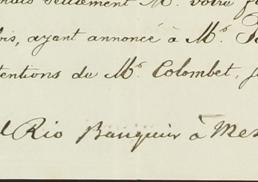 seulement M. votre
ayant annoncé à Mr.
tentions de Mr Colombet,
Rio Banquier à